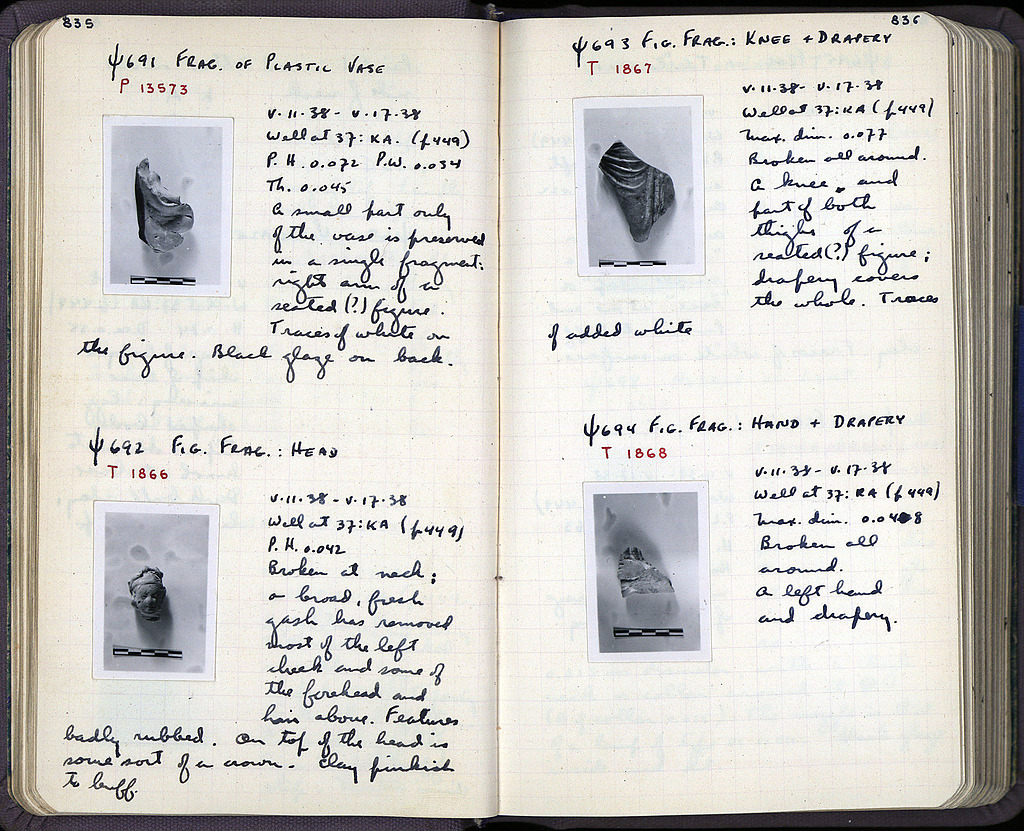 835
ψ691 FRAG. OF PLASTIC VASE
P 13573
V.11.38 - V.17.38
Well at 37:KA. (p449)
P. H. 0.072 P.W. 0.034
Th. 0.045
A small part only
of the vase is preserved
in a single fragment:
right arm of a
seated (?) figure.
Traces of white on
the figure. Black glaze on back.
ψ692 FIG. FRAG.: HEAD
T 1866
V.11.38 - V.17.38
Well at 37:KA (p449)
P. H. 0.042
Broken at neck;
a broad, fresh
gash has removed
most of the left
cheek and some of
the forehead and
hair above. Features
badly rubbed. On top of the head is
some sort of a crown. Clay pinkish
to buff.
836
ψ693 FIG. FRAG.: KNEE + DRAPERY
T 1867
V.11.38 - V.17.38
Well at 37:KA (p449)
Max. dim. 0.077
Broken all around.
A knee, and
part of both
thighs of a
seated (?) figure;
drapery covers
the whole. Traces
of added white
ψ694 FIG. FRAG.: HAND + DRAPERY
T 1868
V.11.38 - V.17.38
Well at 37:KA (p449)
Max. dim.
Broken all
around.
A left hand
and drapery.